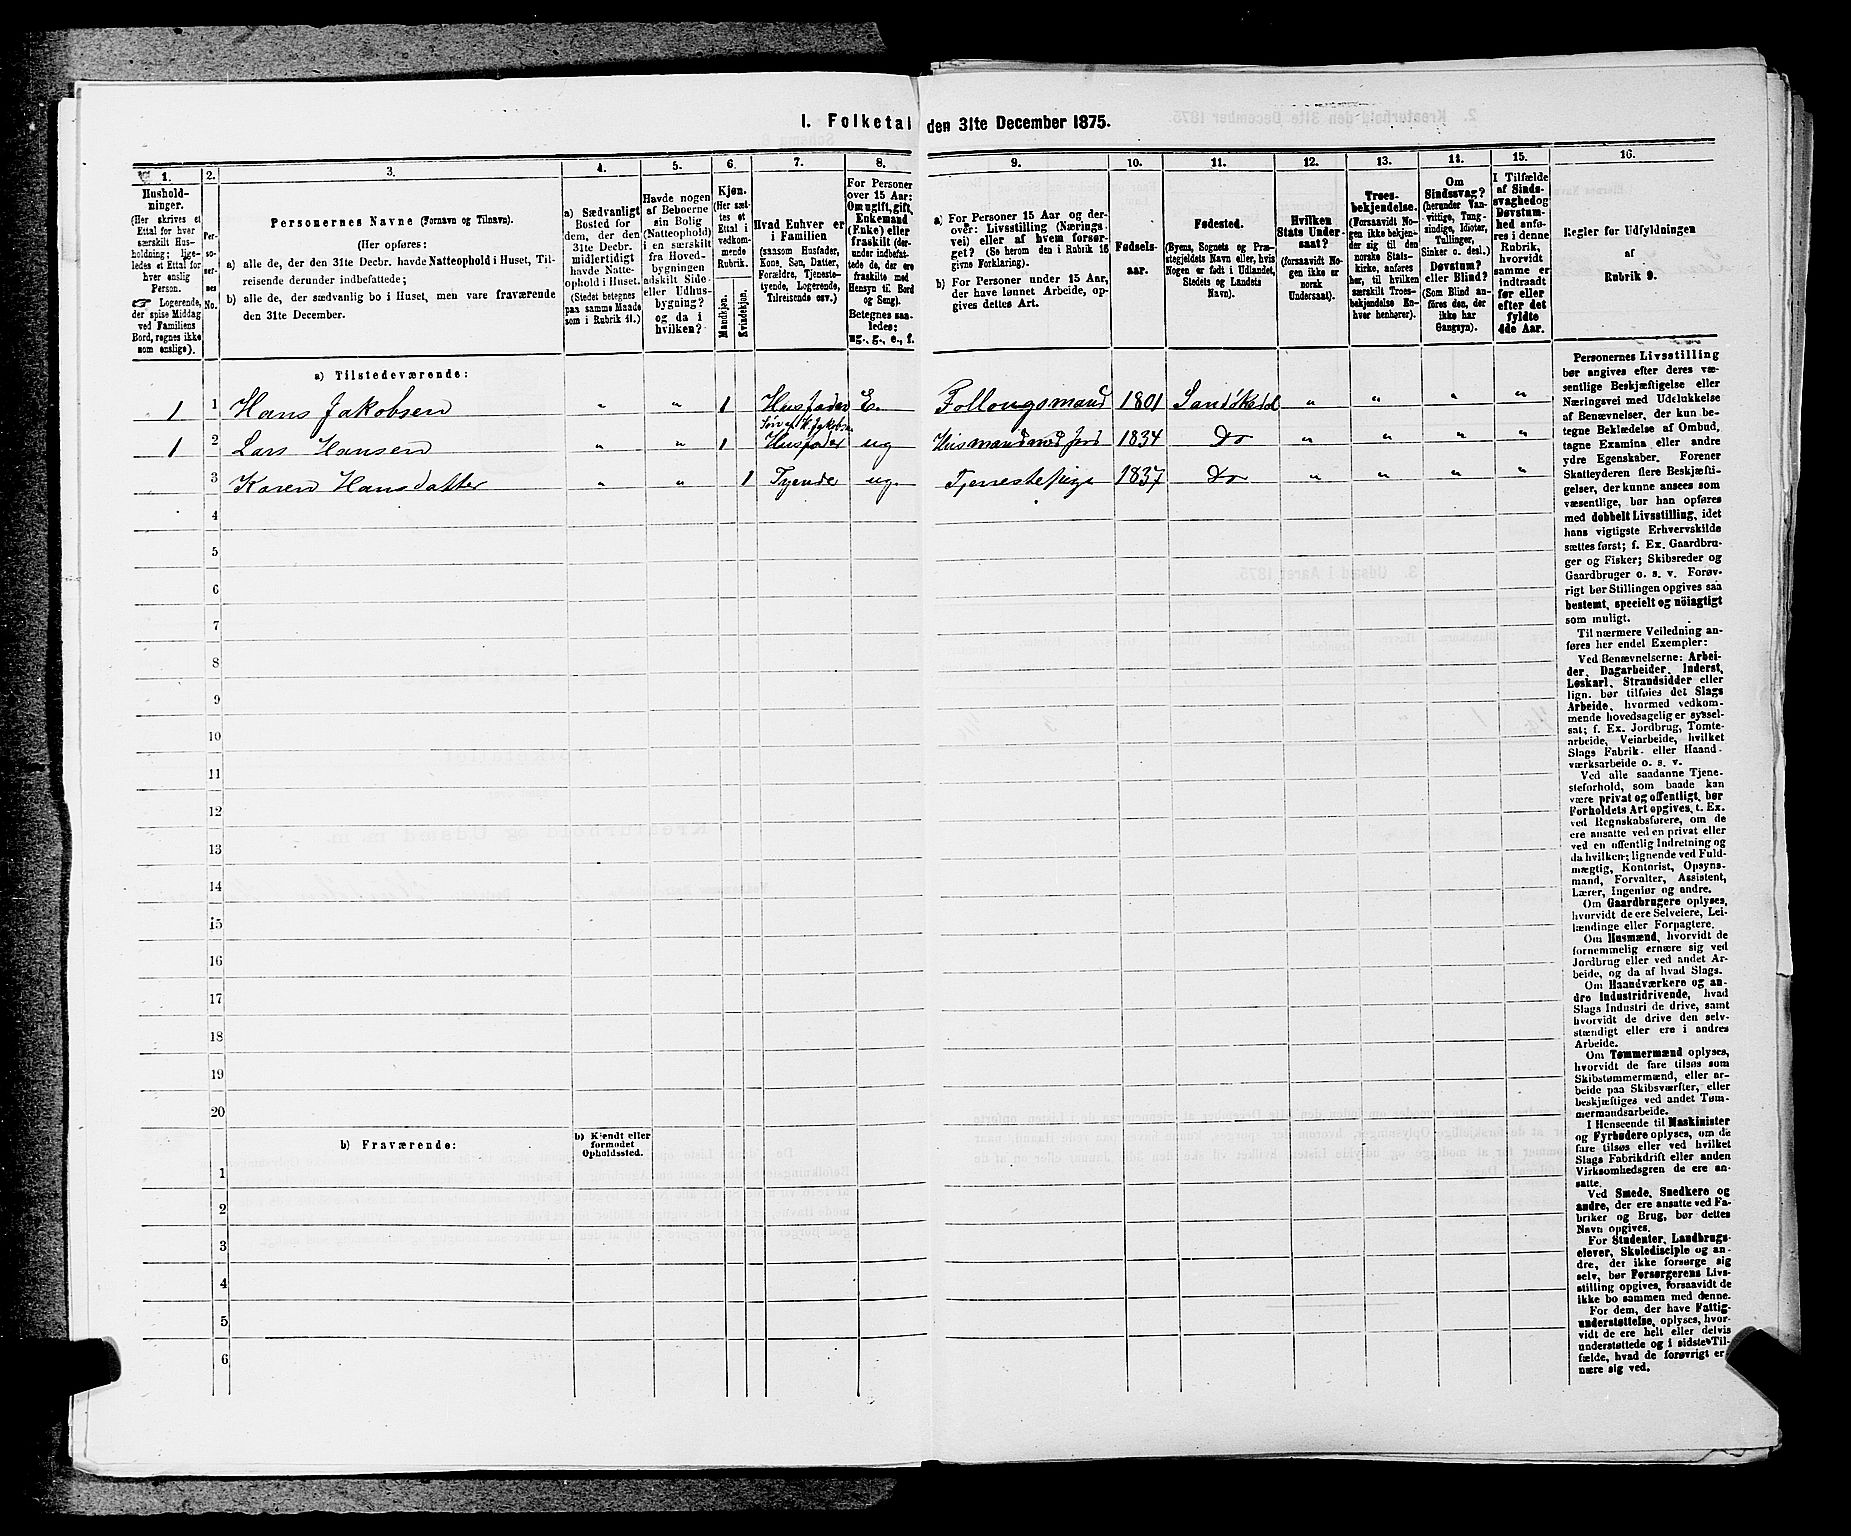 1. Folketal den 31te December 1875.
1. 2. 3. 4. 5. 6. 7. 8. 9. 10. 11. 12. 13. 14. 15. 16.
Hushold-
ninger.
(Her skrives et
Ettal for hver
særskilt Hus-
holdning; lige-
ledes et Ettal for
hver enslig
Person.
Logerende,
der spise Middag
ved Familiens
Bord, regnes ikke
som enslige).
Per-
so-
ner-
nes
No.
Personernes Navne (Fornavn og Tilnavn).
(Her opføres:
a) alle de, der den 31te Decbr. havde Natteophold i Huset, Til-
reisende derunder indbefattede;
b) alle de, der sædvanlig bo i Huset, men vare fraværende
den 31te December.
a) Sædvanligt
Bosted for
dem, der den
31te Decbr.
midlertidigt
havde Natte-
ophold i Huset.
(Stedet betegnes
paa samme Maade
som i Rubrik 11.)
Havde nogen
af Beboerne
sin Bolig
(Natteophold)
i en særskilt
fra Hoved-
bygningen
adskilt Side-
eller Udhus-
bygning?
og da i
hvilken?
Kjøn.
(Her sæt-
tes et
Ettal i
vedkom-
mende
Rubrik.
Mandkjøn.
Kvindekjøn.
Hvad Enhver er
i Familien
(saasom Husfader,
Kone, Søn, Datter,
Forældre, Tjeneste-
tyende, Logerende,
Tilreisende osv.)
For Personer
over 15 Aar:
Om ugift, gift,
Enkemand
(Enke) eller
fraskilt (der-
under indbefat-
tede de, der ere
fraskilte med
Hensyn til Bord
og Seng).
Betegnes saa-
ledes:
ug., g., e., f.
a) For Personer 15 Aar og der-
over: Livsstilling (Nærings-
vei) eller af hvem forsør-
get? (Se herom den i Rubrik 16
givne Forklaring).
b) For Personer under 15 Aar,
der have lønnet Arbeide, op-
gives dettes Art.
Fødsels-
aar.
Fødested.
(Byens, Sognets og Præ-
stegjeldets Navn eller, hvis
Nogen er født i Udlandet,
Stedets og Landets
Navn).
Hvilken
Stats Under-
saat?
(forsaavidt No-
gen ikke er
norsk
Undersaat).
Troes-
bekjendelse.
(Forsaavidt No-
gen ikke bekjen-
der sig til den
norske Stats-
kirke, anføres
her, til hvilken
særskilt Troes-
bekjendelse En-
hver henhører).
Om
Sindssvag?
(herunder Van-
vittige, Tung-
sindige, Idioter,
Tullinger,
Sinker o. desl.)
Døvstum?
eller Blind?
(Som Blind an-
føres den, der
ikke har
Gangsyn).
I Tilfælde
af Sinds-
svaghed og
Døvstum-
hed anfø-
res i denne
Rubrik,
hvorvidt
samme er
indtraadt
før eller
efter det
fyldte
4de Aar.
Regler for Udfyldningen
af
Rubrik 9.
a) Tilstedeværende:
1 1 Hans Jakobsen „ „ 1 Husfader E. Follougsmand 1801 Sandøkedal „ „ „ „
Søn af H. Jakobsen
1 2 Lars Hansen „ „ 1 Husfader ug Husmand med jord 1834 Do „ „ „ „
3 Karen Hansdatter „ „ 1 Tyende ug. Tjenestepige 1837 Do „ „ „ „
4
5
6
7
8
9
10
11
12
13
14
15
16
17
18
19
20
b) Fraværende:
b) Kjendt eller
formodet
Opholdssted.
1
2
3
4
5
6
Personernes Livsstilling
bør angives efter deres væ-
sentlige Beskjæftigelse eller
Næringsvei med Udelukkelse
af Benævnelser, der kun be-
tegne Beklædelse af Ombud,
tagne Examina eller andre
ydre Egenskaber. Forener
Skatteyderen flere Beskjæfti-
gelser, der kunne ansees som
væsentlige, bør han opføres
med dobbelt Livsstilling, idet
hans vigtigste Erhvervskilde
sættes først; f. Ex. Gaardbru-
ger og Fisker; Skibsreder og
Gaardbruger o. s. v. Forøv-
rigt bør Stillingen opgives saa
bestemt, specielt og nöiagtigt
som muligt.
Til nærmere Veiledning an-
føres her endel Exempler:
Ved Benævnelserne: Arbei-
der, Dagarbeider, Inderst,
Løskarl, Strandsidder eller
lign. bør tilføies det Slags
Arbeide, hvormed vedkom-
mende hovedsagelig er syssel-
sat; f. Ex. Jordbrug, Tomte-
arbeide, Veiarbeide, hvilket
Slags Fabrik- eller Haand-
værksarbeide o. s. v.
Ved alle saadanne Tjene-
steforhold, som baade kan
være privat og offentligt, bør
Forholdets Art opgives, t. Ex.
ved Regnskabsførere, om de
ere ansatte ved en privat eller
ved en offentlig Indretning og
da hvilken; lignende ved Fuld-
mægtig, Kontorist, Opsyns-
mand, Forvalter, Assistent,
Lærer, Ingeniør og andre.
Om Gaardbrugere oplyses,
hvorvidt de ere Selveiere, Lei-
lændinge eller Forpagtere.
Om Husmænd, hvorvidt de
fornemmelig ernære sig ved
Jordbrug eller ved andet Ar-
beide, og da af hvad Slags.
Om Haandværkere og an-
dre Industridrivende, hvad
Slags Industri de drive, samt
hvorvidt de drive den selv-
stændigt eller ere i andres
Arbeide.
Om Tømmermænd oplyses,
hvorvidt de fare tilsøs som
Skibstømmermænd, eller ar-
beide paa Skibsværfter, eller
beskjæftiges ved andet Tøm-
mermandsarbeide.
I Henseende til Maskinister
og Fyrbødere oplyses, om de
fare tilsøs eller ved hvilket
Slags Fabrikdrift eller anden
Virksomhedsgren de ere an-
satte.
Ved Smede, Snedkere og
andre, der ere ansatte ved Fa-
briker og Brug, bør dettes
Navn opgives.
For Studenter, Landbrugs-
elever, Skoledisciple og an-
dre, der ikke forsørge sig
selv, bør Forsørgerens Livs-
stilling opgives, forsaavidt de
ikke bo sammen med denne.
For dem, der have Fattig-
understøttelse, oplyses, hvor-
vidt de ere helt eller delvis
understøttede og i sidste Til-
fælde, hvad de forøvrigt er-
nære sig ved.